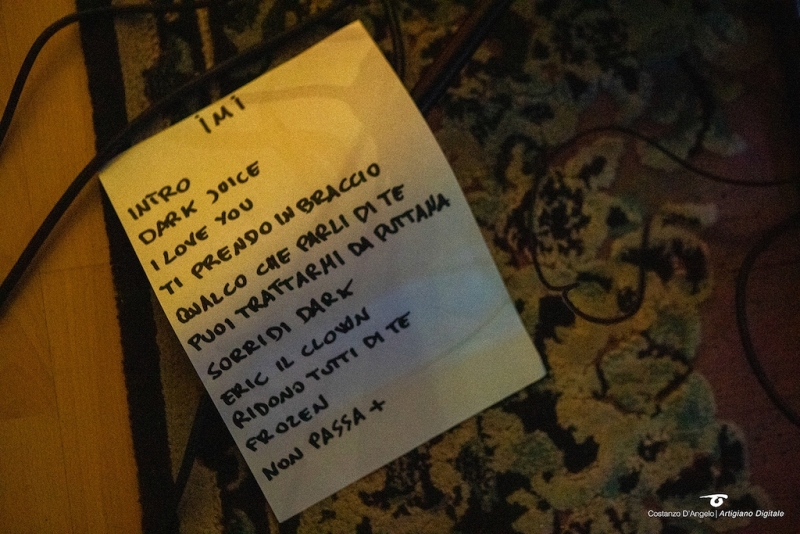 iMi
INTRO
DARK JUICE
I LOVE YOU
TI PRENDO IN BRACCIO
QUALCO CHE PARLI DI TE
PUOI TRATTARMI DA PUTTANA
SORRIDI DARK
ERIC IL CLOWN
RIDONO TUTTI DI TE
FROZEN
NON PASSA +
Costanzo D'Angelo | Artigiano Digitale